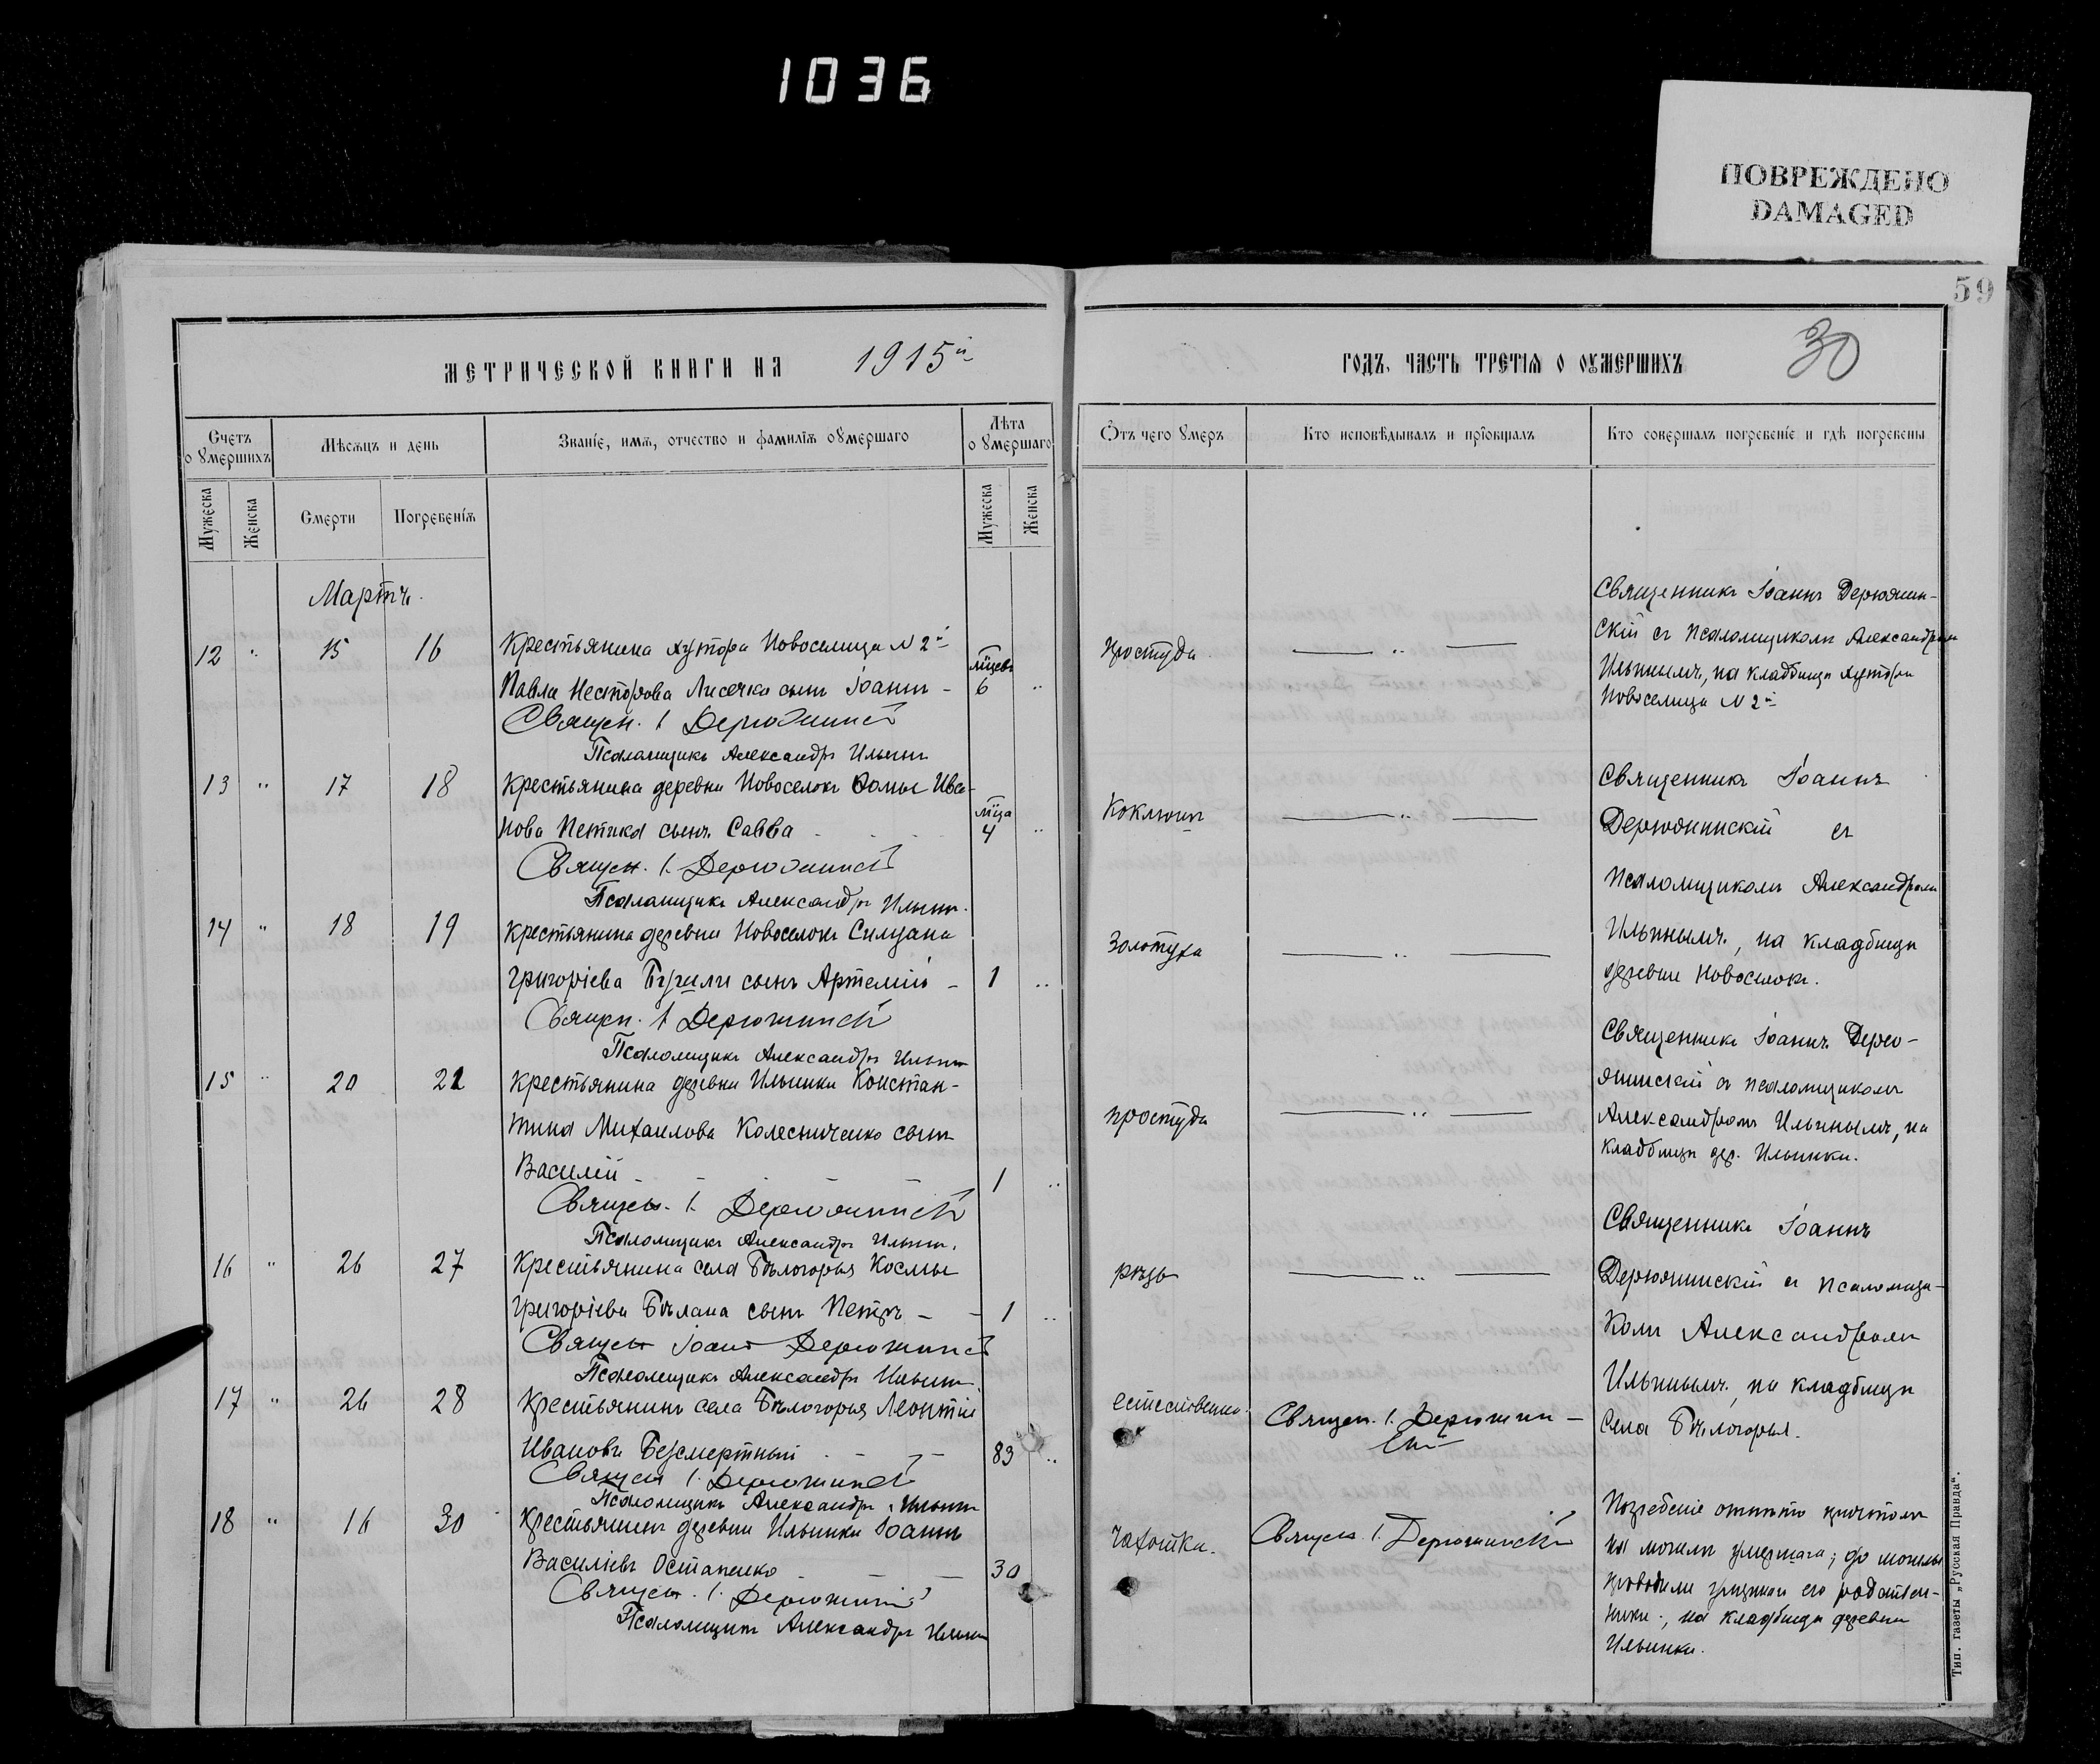 1036
ПОВРЕЖДЕНО
DAMAGED
59
МЕТРИЧЕСКОЙ КНИГИ НА 1915й
ГОДЪ, ЧАСТЬ ТРЕТІѦ О ОУМЕРШИХЪ
30
Счетъ оумершихъ
Мѣсѧцъ и день
Званіе, имѧ, отчество и фамиліѧ оумершаго
Лѣта оумершаго
Ѿъ чего умеръ
Кто исповѣдывалъ и пріобщалъ
Кто совершалъ погребеніе и гдѣ погребены
Мужеска
Женска
Смерти
Погребеніѧ
Мужеска
Женска
Мартъ.
12 " 15 16 Крестьянина хутора Новоселица N 2й
Павла Несторова Лисечко сынъ Іоаннъ - мцевъ 6 "
Священ. І Дерюжинскій
Псаломщикъ Александръ Ильинъ
простуда
Священникъ Іоаннъ Дерюжин-
скій съ псаломщикомъ Александромъ
Ильинымъ, на кладбищѣ хутора
Новоселица N 2й
13 " 17 18 Крестьянина деревни Новоселокъ Ѳомы Ива-
нова Петика сынъ Савва мца 4 "
Священ. І. Дерюжинскій
Псаломщикъ Александръ Ильинъ.
Коклюшъ
14 " 18 19 Крестьянина деревни Новоселокъ
Григоріева сынъ Артемій - 1 "
Священ. І Дерюжинскій
Псаломщикъ Александръ Ильинъ
Золотуха
Священникъ Іоаннъ
Дерюжинскій съ
псаломщикомъ Александромъ
Ильинымъ, на кладбищѣ
деревни Новоселокъ.
15 " 20 21 Крестьянина деревни Ильинки Констан-
тина Михаилова Колесниченко сынъ
Василій - 1 "
Священ. І. Дерюжинскій
Псаломщикъ Александръ Ильинъ.
простуда
Священникъ Іоаннъ Дерю-
жинскій съ псаломщикомъ
Александромъ Ильинымъ, на
кладбищѣ дер. Ильинки.
16 " 26 27 Крестьянина села Бѣлогорья Космы
Григоріева Бѣлана сынъ Петръ - 1 "
Священ Іоаннъ Дерюжинскій
Псаломщикъ Александръ Ильинъ.
17 " 26 28 Крестьянинъ села Бѣлогорья Леонтій
Ивановъ Безсмертный - 83 "
Священ І. Дерюжинскій
Псаломщикъ Александръ Ильинъ
естественно
Священ. І. Дерюжин-
скій
Священникъ Іоаннъ
Дерюжинскій съ псаломщи-
комъ Александромъ
Ильинымъ, на кладбищѣ
села Бѣлогорья.
18 " 16 30 Крестьянинъ деревни Ильинки Іоаннъ
Василіевъ Остапенко - 30
Священ. І. Дерюжинскій
Псаломщикъ Александръ Ильинъ
чахотка.
Священ. І. Дерюжинскій
Погребеніе отпѣто
на могилѣ умершаго; до могилы
проводили его родствен-
ники, на кладбищѣ деревни
Ильинки.
Тип. газеты „Русская Правда“.